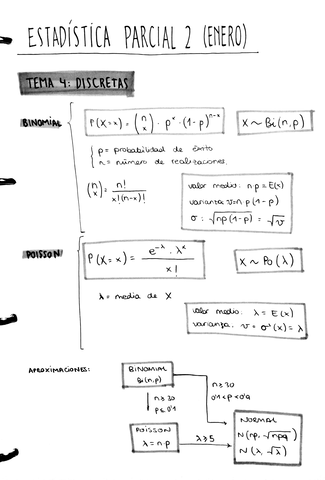 ESTADÍSTICA PARCIAL 2 (ENERO)
TEMA 4: DISCRETAS
BINOMIAL
P(X=x) = (n x) · p^x · (1-p)^n-x
X ~ Bi(n,p)
p = probabilidad de éxito
n = número de realizaciones.
(n x) = n! / x!(n-x)!
valor medio: n·p = E(x)
varianza: v = n p (1-p)
σ: √np(1-p) = √v
POISSON
P(X=x) = e^-λ · λ^x / x!
X ~ Po(λ)
λ = media de X
valor medio: λ = E(x)
varianza: v = σ²(x) = λ
APROXIMACIONES:
BINOMIAL
Bi(n,p)
n ≥ 30
p ≤ 0'1
n ≥ 30
0'1 < p < 0'9
POISSON
λ = n·p
λ ≥ 5
NORMAL
N(np, √npq)
N(λ, √λ)